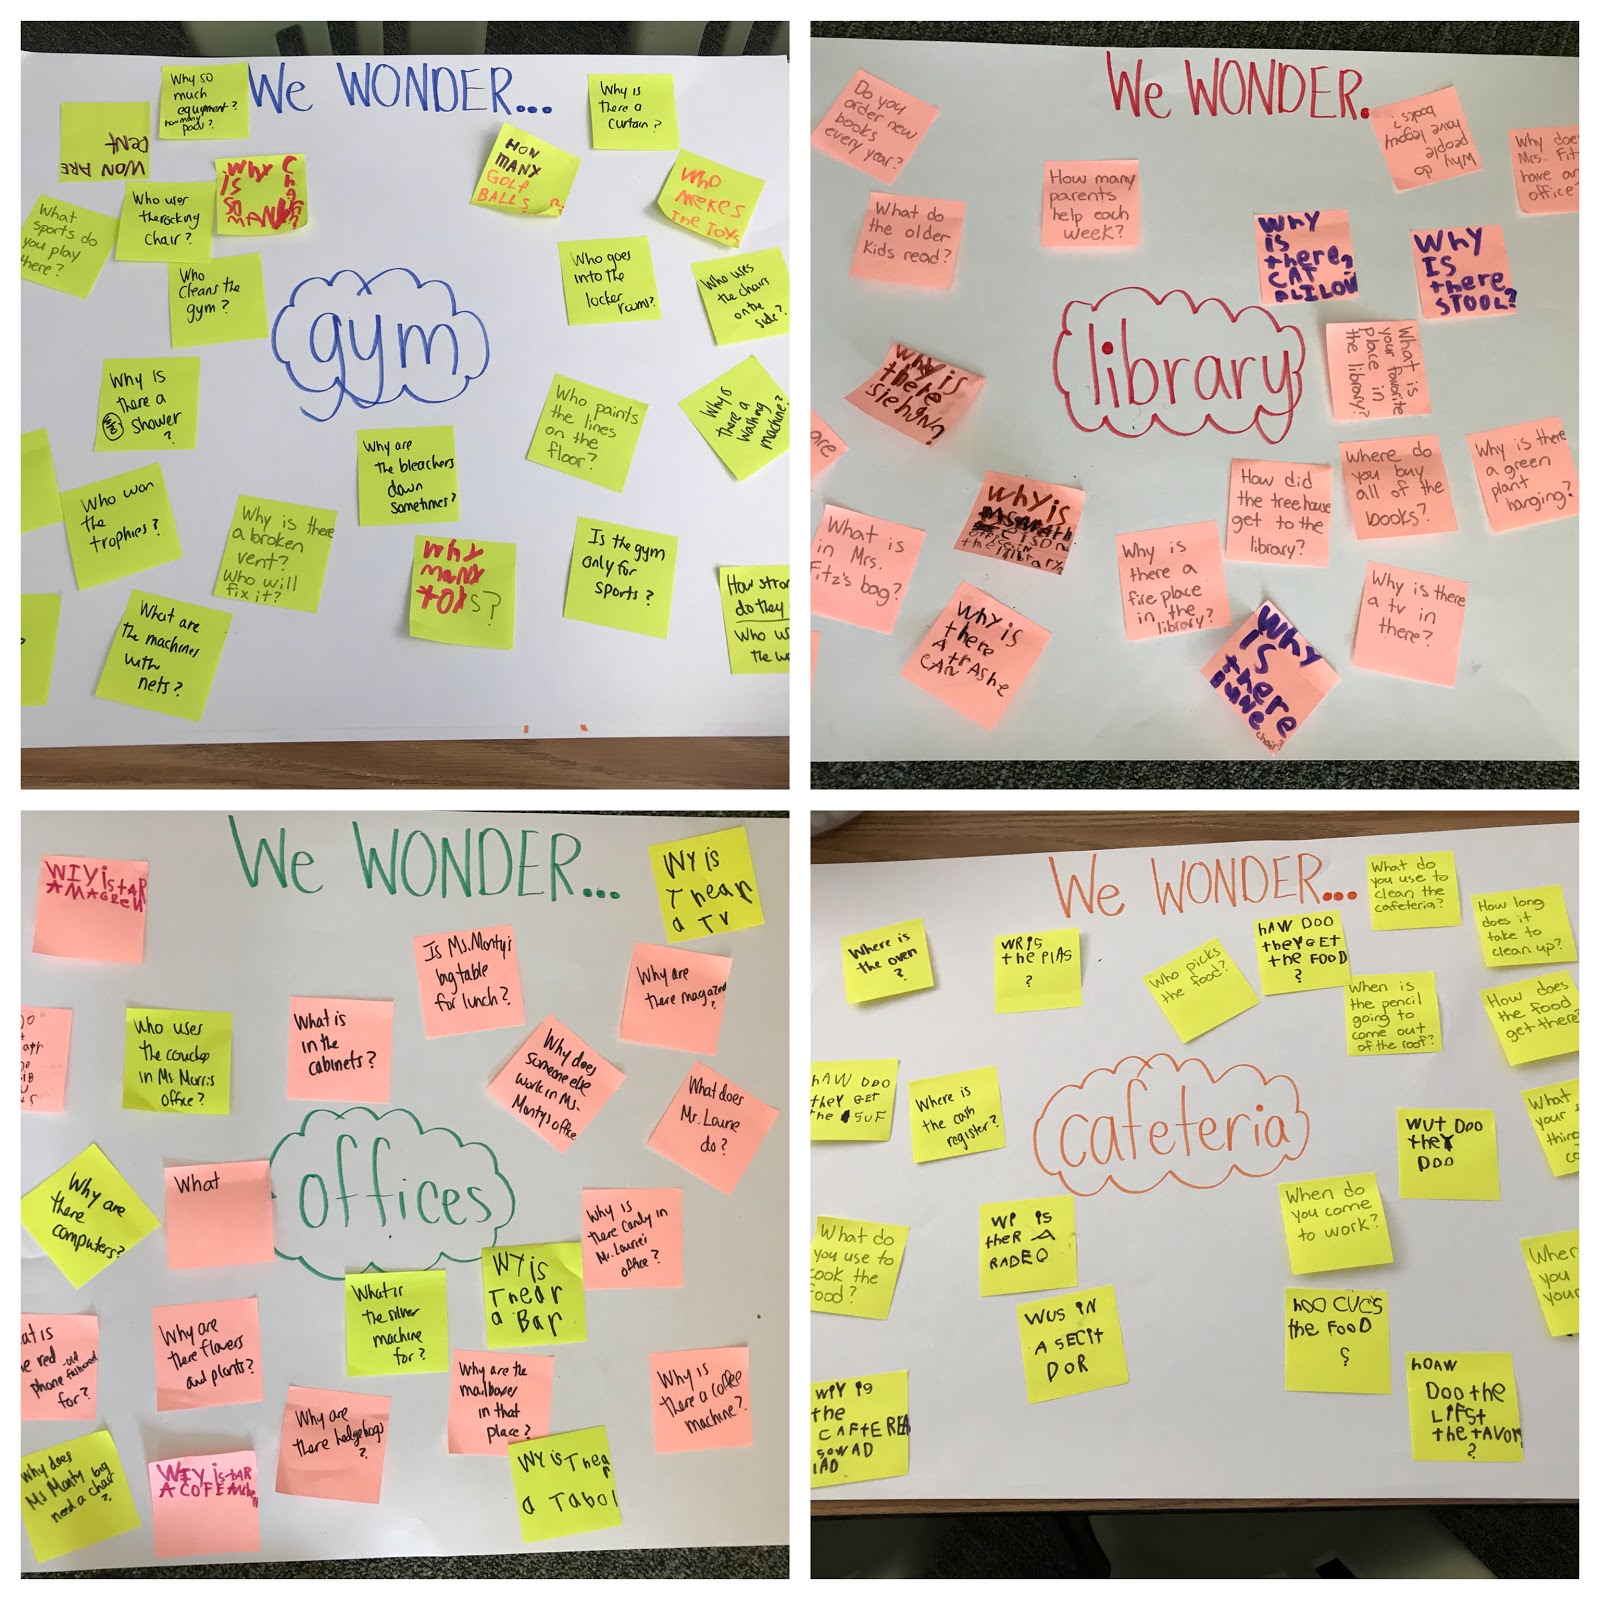 We WONDER...
Why so
much
equipment?
how many
pods?
WON ARE
DENT
Why is
there a
curtain?
HOW
MANY
GOLF
BALLS?
WHO
MEKES
THE TOYS
WHY
IS
SO
What
sports do
you play
there?
Who uses
the rocking
chair?
Who
cleans the
gym?
Who goes
into the
locker
room?
Who uses
the chairs
on the
side?
gym
Why is
there a
shower
?
Why are
the bleachers
down
sometimes?
Who paints
the lines
on the
floor?
Why is
there a
washing
machine?
Who won
the
trophies?
Why is there
a broken
vent?
Who will
fix it?
Why
many
toys?
Is the gym
only for
sports?
How stro
do they
Who u
the w
What are
the machines
with
nets?
We WONDER.
Do you
order new
books
every year?
Why do
people
have legos
books?
Why doe
Mrs. Fit
have an
office?
How many
parents
help each
week?
What do
the older
kids read?
WHY
is
there
CAT
PLILOW
WHY
IS
there
STOOL?
library
What is
your favorite
place in
the library?
WHY is
there
siehon?
are
Where do
you buy
all of the
books?
Why is there
a green
plant
hanging?
How did
the treehouse
get to the
library?
WHY is
in
the library
What is
in Mrs.
Fitz's bag?
Why is
there a
fire place
in the
library?
Why is there
a tv in
there?
WHY is
there
A tRAShe
CAN
WHY
IS
there
BUNNE
chair?
We WONDER...
WIY is tAR
A MAGEEN
WY is
Thear
a TV
Is Ms. Monty's
big table
for lunch?
Why are
there magazines
?
Who uses
the couches
in Ms Morris
office?
What is
in the
cabinets?
Why does
someone else
work in Ms.
Monty's office
What does
Mr. Laurie
do?
Why are
there
computers?
What
offices
Why is
there candy in
Mr. Laurie's
office?
What is
the silver
machine
for?
WY is
Thear
a Bar
at is
e red
phone -old
fashioned
for?
Why are
there flowers
and plants?
Why are the
mailboxes
in that
place?
Why is
there a coffee
machine?
Why are
there hedgehogs
?
Why does
Ms Monty big
need a chair
?
WIY is tAR
A COFE
WY is Thea
r
a Tabol
We WONDER...
What do
you use to
clean the
cafeteria?
How long
does it
take to
clean up?
Where is
the oven
?
WR is
the PlAS
?
Who picks
the food?
hAW DOO
theY GEt
the FOOD
?
When is
the pencil
going to
come out
of the roof?
How does
the food
get there?
hAW DOO
they GET
the SUF
Where is
the cash
register?
cafeteria
WUt DOO
theY
DOO
What
your
thin
co
What do
you use to
cook the
food?
WP is
theR A
RADEO
When do
you come
to work?
Wher
you
your
WUS IN
A SECIt
DOR
hOO CUCS
the FOOD
?
WIY is
the
CAFtERE
SOWAD
hOAW
DOO the
LIFSt
the tAVOL
?